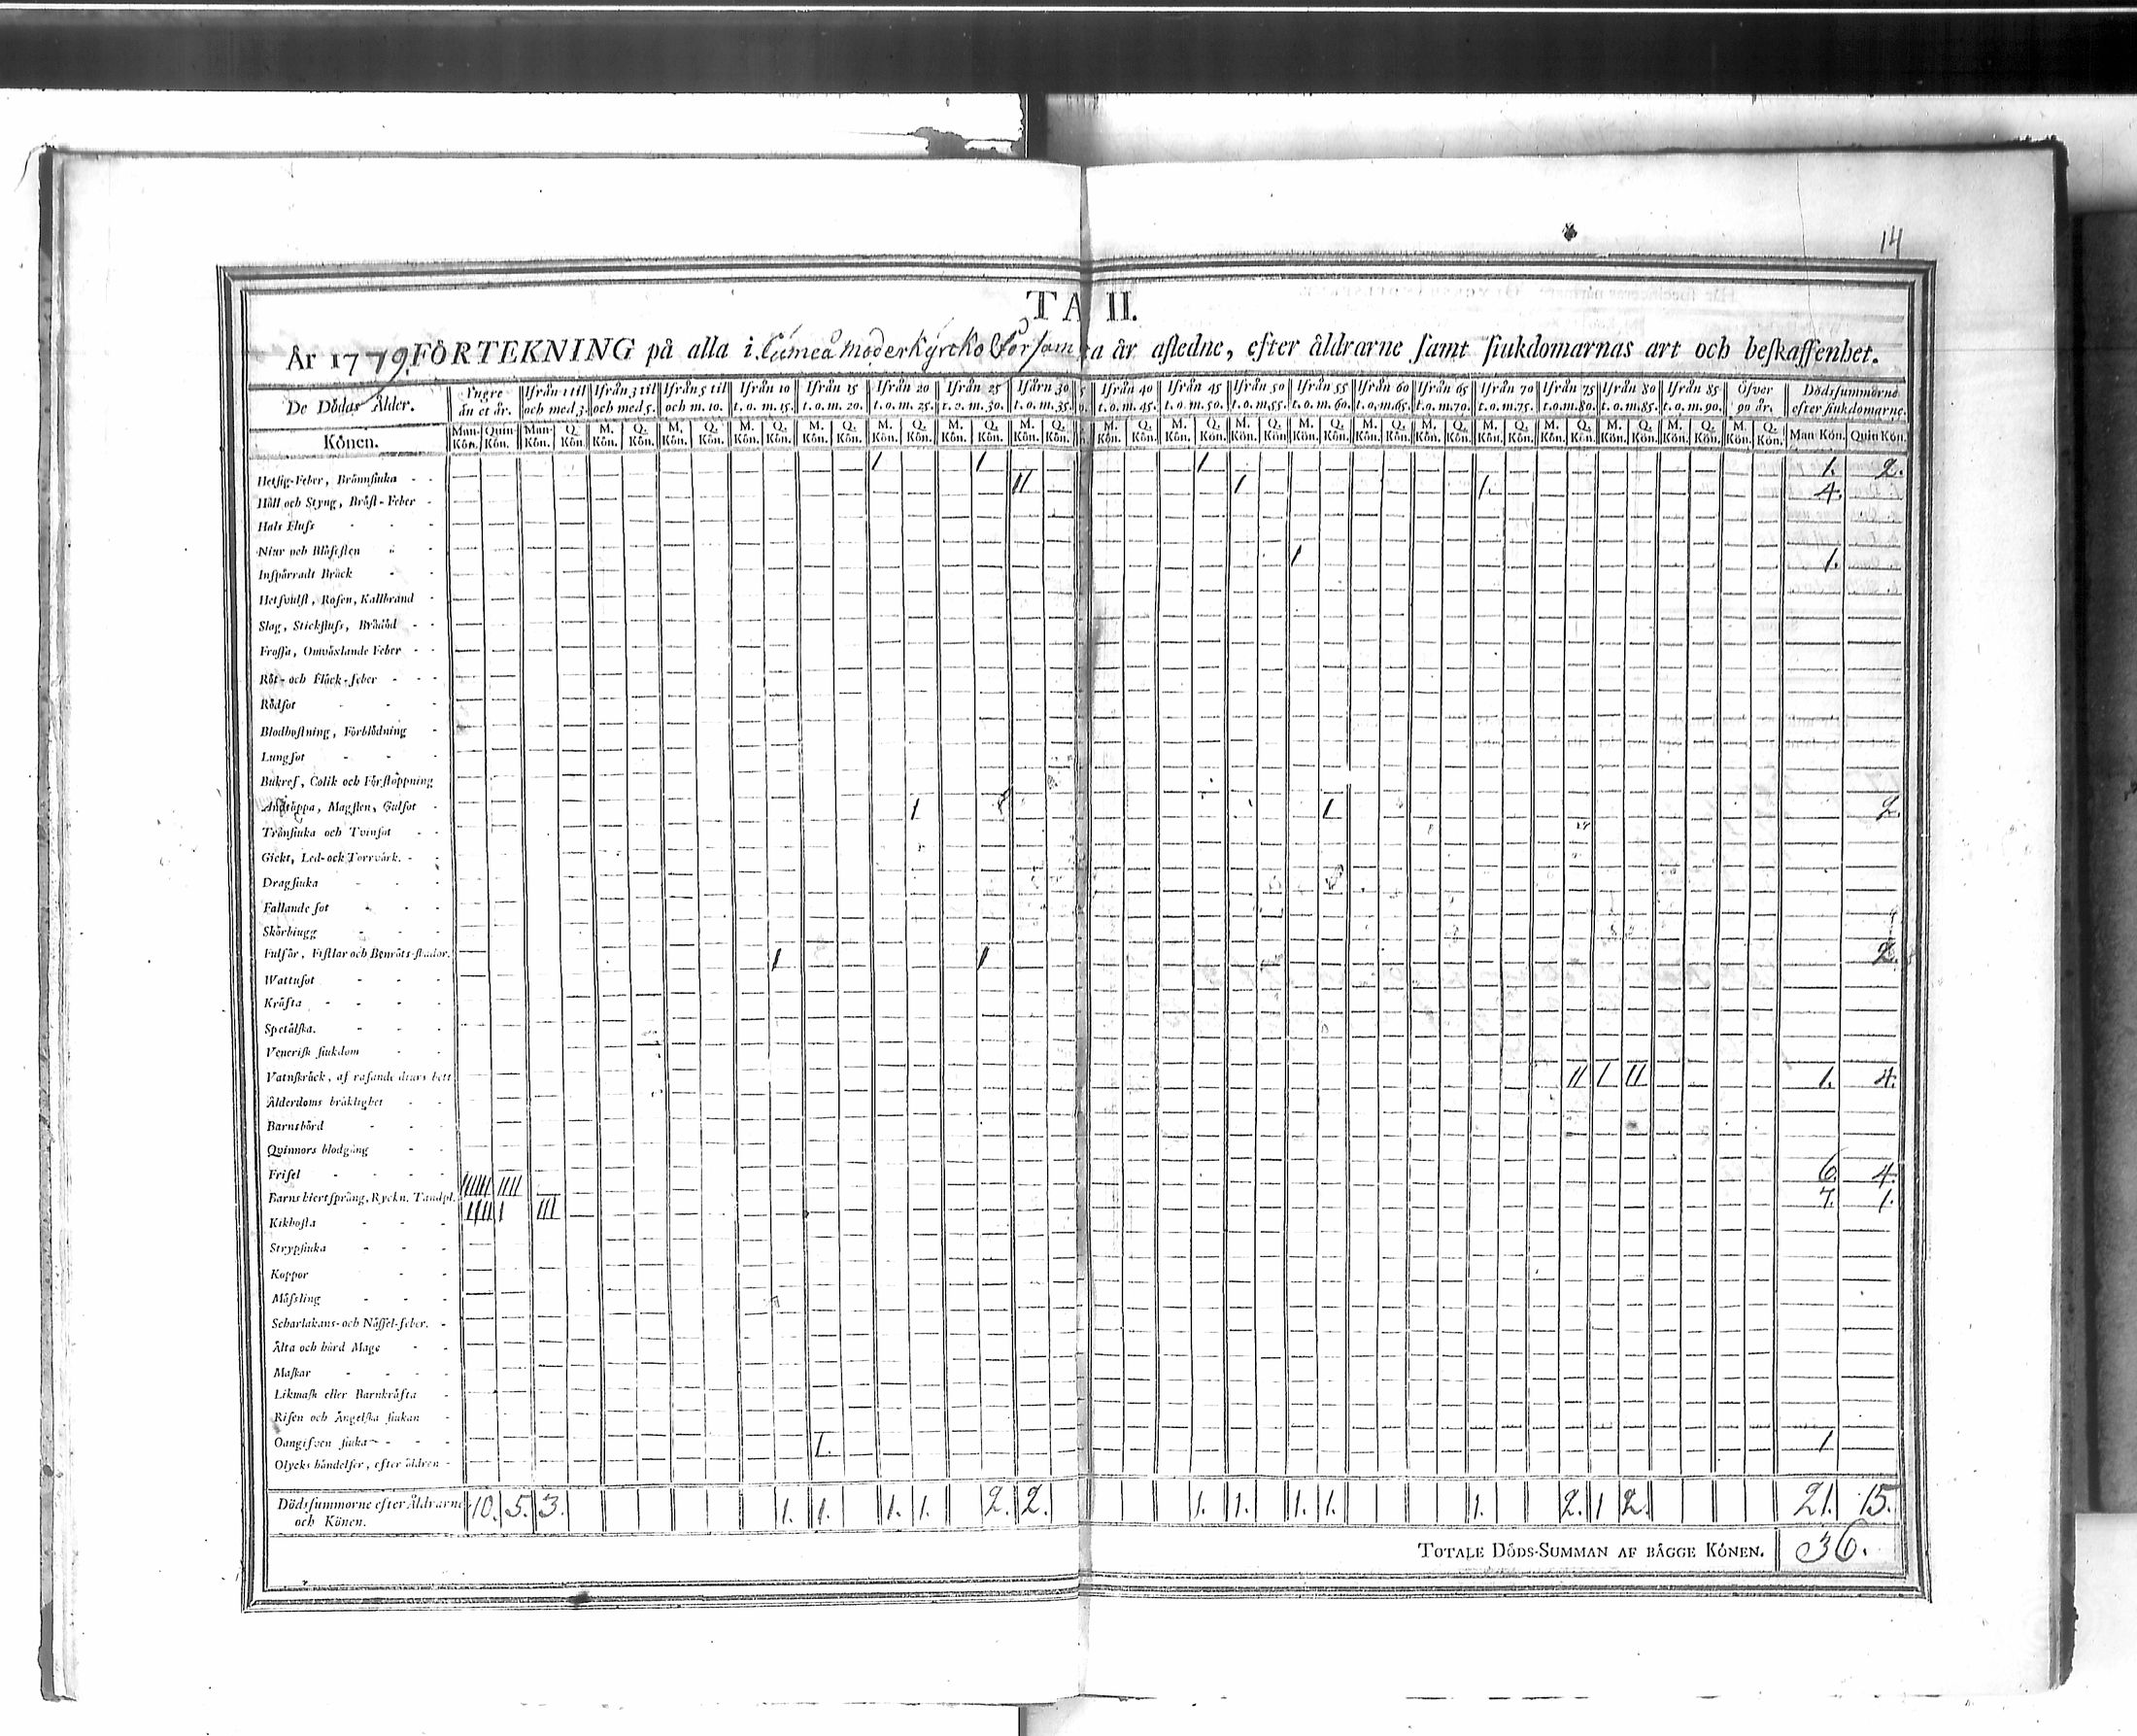 14
TA II.
År 1779. FÖRTEKNING på alla i Lümeå Moderkyrcko Församma år afledne, efter åldrarne samt siukdomarnas art och beskaffenhet.
De Dödas Ålder. Yngre än et år. Ifrån 1 til och med 3. Ifrån 3 til och med 5. Ifrån 5 til och m. 10. Ifrån 10 t. o. m. 15. Ifrån 15 t. o. m. 20. Ifrån 20 t. o. m. 25. Ifrån 25 t. o. m. 30. Ifårn 30 t. o. m. 35. Ifrån 40 t. o. m. 45. Ifrån 45 t. o. m. 50. Ifrån 50 t. o. m. 55. Ifrån 55 t. o. m. 60. Ifrån 60 t. o. m. 65. Ifrån 65 t. o. m. 70. Ifrån 70 t. o. m. 75. Ifrån 75 t. o. m. 80. Ifrån 80 t. o. m. 85. Ifrån 85 t. o. m. 90. Öfver 90 år. Dödssummorne efter siukdomarne.
Könen. Man-Kön. Quin-Kön. Man-Kön. Q. Kön. M. Kön. Q. Kön. M. Kön. Q. Kön. M. Kön. Q. Kön. M. Kön. Q. Kön. M. Kön. Q. Kön. M. Kön. Q. Kön. M. Kön. Q. Kön. M. Kön. Q. Kön. M. Kön. Q. Kön. M. Kön. Q. Kön. M. Kön. Q. Kön. M. Kön. Q. Kön. M. Kön. Q. Kön. M. Kön. Q. Kön. M. Kön. Q. Kön. M. Kön. Q. Kön. M. Kön. Q. Kön. M. Kön. Q. Kön. Man Kön. Quin Kön.
Hetsig-Feber, Brännsiuka I I I 1. 2.
Håll och Styng, Bröst-Feber II I I. 4.
Hals Fluss
Niur och Blåsesten
Inspärradt Bråck I 1.
Hetsvulst, Rosen, Kallbrand
Slag, Stickfluss, Brådöd
Frossa, Omväxlande Feber
Röt- och Fläck-feber
Rödsot
Blodhostning, Förblödning
Lungsot
Bukref, Colik och Förstoppning
Andtäppa, Magsten, Gulsot I I 2.
Trånsiuka och Tvinsot
Gickt, Led- och Torrvärk.
Dragsiuka
Fallande sot
Skörbiugg
Fulsår, Fistlar och Benröts-skador. I I 2.
Wattusot
Kräfta
Spetälska.
Venerisk siukdom
Vatnskräck, af rasande diurs bett II I II 1. 4.
Ålderdoms bräklighet
Barnsbörd
Qvinnors blodgång
Frisel 6. 4.
Barns hiertsprång, Ryckn. Tandpl. IIIIII IIII 7. 1.
Kikhosta IIII I III
Strypsiuka
Koppor
Mässling
Scharlakans- och Nässel-feber.
Älta och hård Mage
Maskar
Likmask eller Barnkräfta
Risen och Ängelska siukan
Oangifven siuka I. 1
Olycks händelser, efter åldren
Dödssummorne efter Åldrarne och Könen. 10. 5. 3. 1. 1. 1. 1. 2. 2. 1. 1. 1. 1. 1. 2. 1 2. 21. 15.
TOTALE DÖDS-SUMMAN AF BÄGGE KÖNEN. 36.